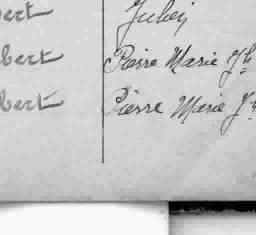 bert Julien
bert Pierre Marie Jh
bert Pierre Marie J